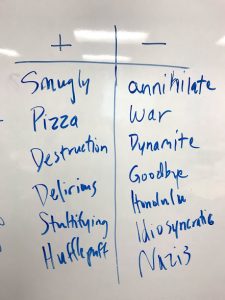 + −
Smugly annihilate
Pizza War
Destruction Dynamite
Delirious Goodbye
Stultifying Honolulu
Hufflepuff Idiosyncratic
Nazis